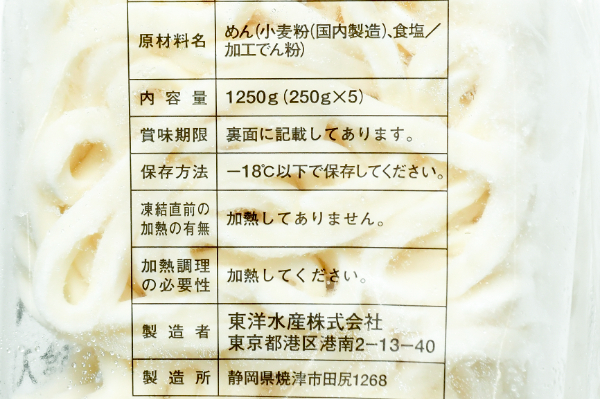 原材料名 めん(小麦粉(国内製造)、食塩／
加工でん粉)
内容量 1250g(250g×5)
賞味期限 裏面に記載してあります。
保存方法 −18℃以下で保存してください。
凍結直前の
加熱の有無 加熱してありません。
加熱調理
の必要性 加熱してください。
製造者 東洋水産株式会社
東京都港区港南2−13−40
製造所 静岡県焼津市田尻1268